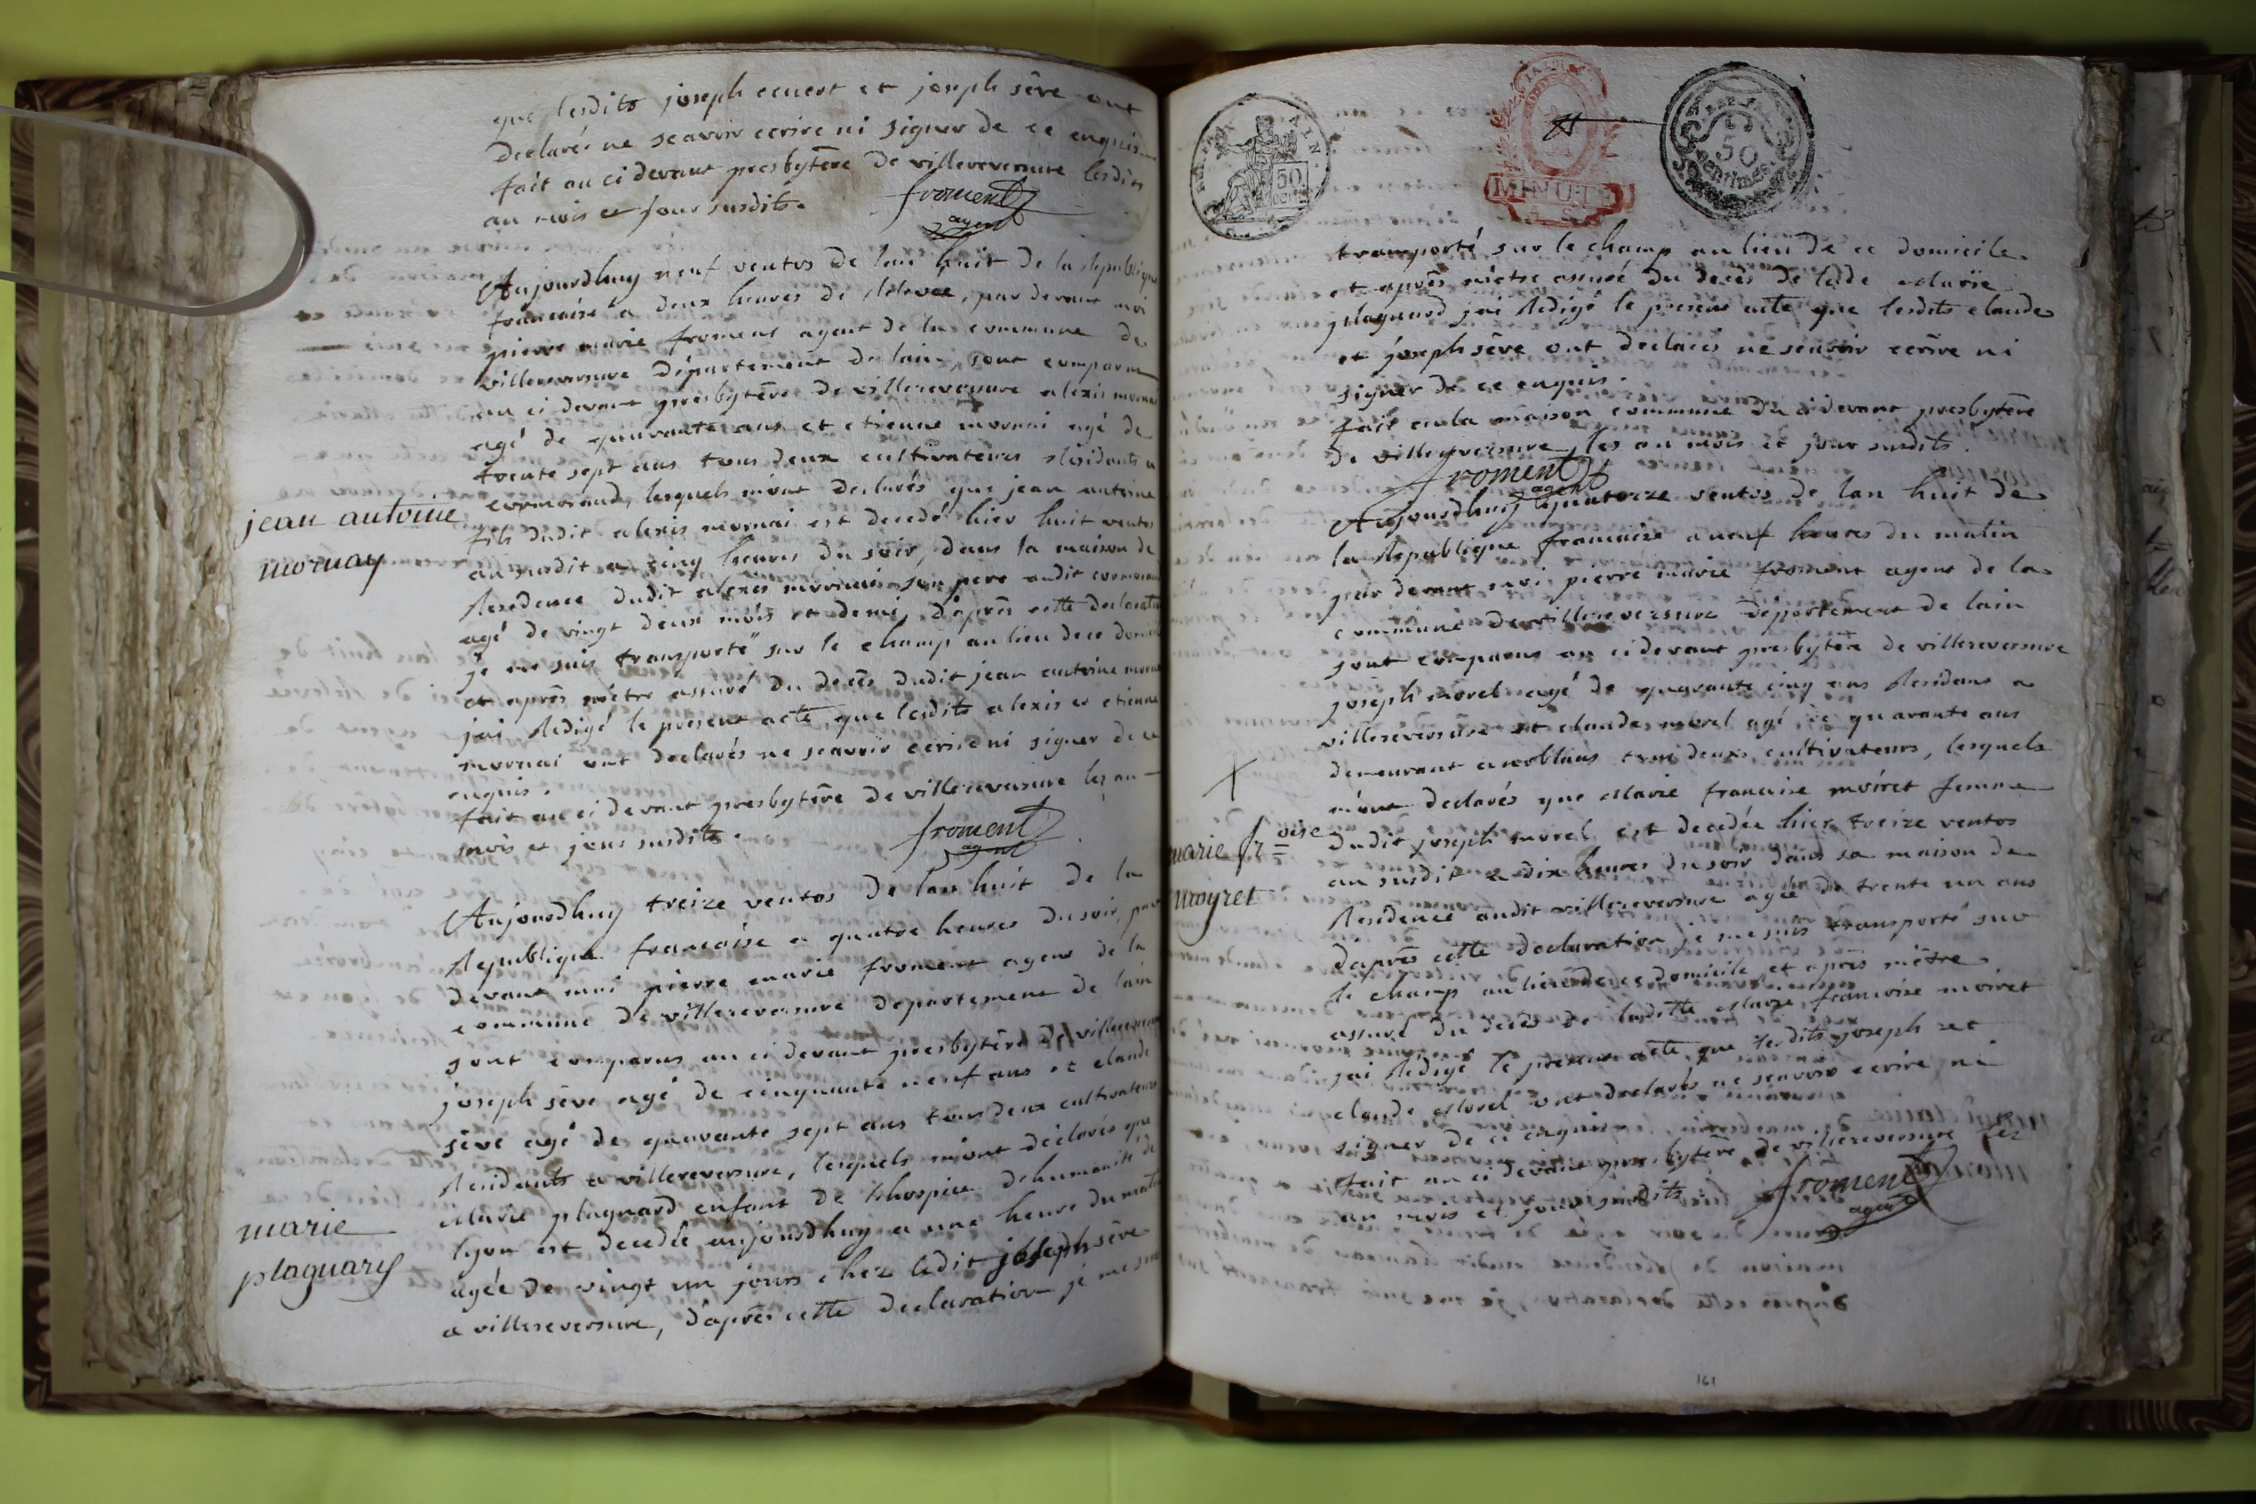 que lesdits joseph ecuert et joseph sêve ont
declarés ne scavoir ecrire ni signer de ce enquis
fait au ci devant presbytêre de villereversure lesdits
an mois et jour susdits.
froment
agent
Aujourdhuy neuf ventos de lan huit de la Republique
francaise a deux heures de Relevee, par devant moi
pierre marie froment agent de la commune de
villereversure département de lain, sont comparus
au ci devant presbytêre de villereversure alexis mornai
agé de quarante ans et etienne mornai agé de
trente sept ans tous deux cultivateurs Residants a
cormorand, lesquels mont declarés que jean antoine
fils dudit alexis mornai est decedé hier huit ventos
an susdit a cinq heures du soir, dans la maison de
Residence dudit alexis mornai son pere audit cormorand
agé de vingt deux mois et demi, d'après cette declaration
je me suis transporté sur le champ au lieu de ce domicile
et après m'être assuré du decès dudit jean antoine mornai
jai Redigé le present acte que lesdits alexis et etienne
mornai ont declarés ne scavoir ecrire ni signer de ce
enquis.
fait au ci devant presbytêre de villereversure les an
mois et jour susdits.
froment
agent
jean antoine
mornay
Aujourdhuy treize ventos de lan huit de la
Republique francaise a quatre heures du soir, par
devant moi pierre marie froment agent de la
commune de villereversure departement de lain
sont comparus au ci devant presbytêre de villereversure
joseph sêve agé de cinquante neuf ans et claude
sêve agé de quarante sept ans tous deux cultivateurs
Residants a villereversure, lesquels mont declarés que
Marie plagnard enfant de lhospice dehumanité de
lyon est decedée aujourdhuy a une heure du matin
agée de vingt un jours chez ledit joseph sêve
a villereversure, d'après cette declaration je me suis
marie
plagnard
50
MINUTE
50
centimes
transporté sur le champ au lieu de ce domicile
et après m'être assuré du decès de lade Marie
plagnard jai Redigé le present acte que lesdits claude
et joseph sêve ont declarés ne scavoir ecrire ni
signer de ce enquis.
fait en la maison commune du ci devant presbytêre
de villereversure les an mois et jour susdits.
froment
agent
Aujourdhuy quatorze ventos de lan huit de
la Republique francaise a neuf heures du matin
par devant moi pierre marie froment agent de la
commune de villereversure département de lain
sont comparus au ci devant presbytêre de villereversure
joseph morel agé de quarante cinq ans Residant a
villereversure et claude morel agé de quarante ans
demeurant a noblans tous deux cultivateurs, lesquels
mont declarés que Marie francoise moiret femme
dudit joseph morel est decedée hier treize ventos
an susdit a dix heures du soir dans sa maison de
Residence audit villereversure agée de trente un ans
d'après cette declaration je me suis transporté sur
le champ au lieu de ce domicile et après m'être
assuré du decès de laditte Marie francoise moiret
jai Redigé le present acte que lesdits joseph et
claude Morel ont declarés ne scavoir ecrire ni
signer de ce enquis.
fait au ci devant presbytêre de villereversure les
an mois et jour susdits.
froment
agent
marie froise
moyret
161